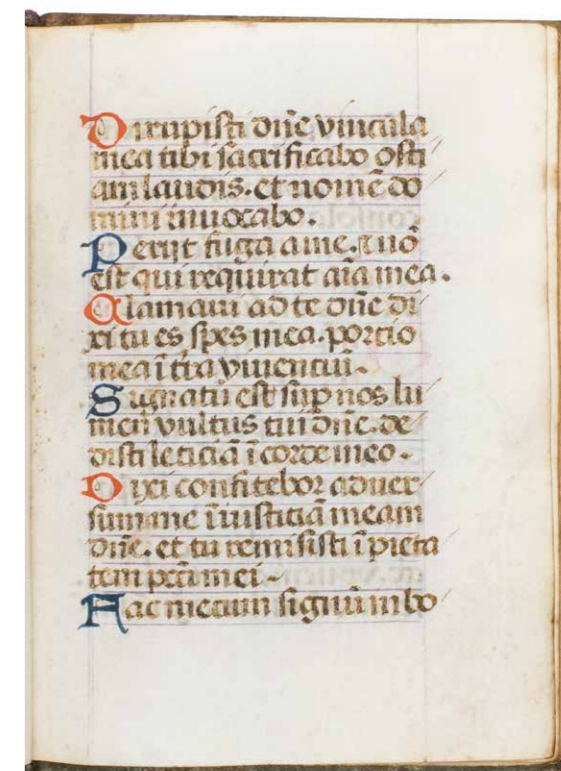 Dirupisti dn̄e vincula
mea tibi sacrificabo osti
am laudis. et nomē do
mini invocabo.
Perijt fuga a me. ⁊ nō
est qui requirat aīa mea.
Clamavi ad te dn̄e di
xi tu es spes mea. portio
mea ī tr̄a viventiū.
Signatū est sup nos lu
men vultus tui dn̄e. de
disti leticiā ī corde meo.
Dixi confitebor adver
sum me īiustitiā meam
dn̄e. et tu remisisti īpieta
tem pc̄ti mei
Fac mecum signū in bo